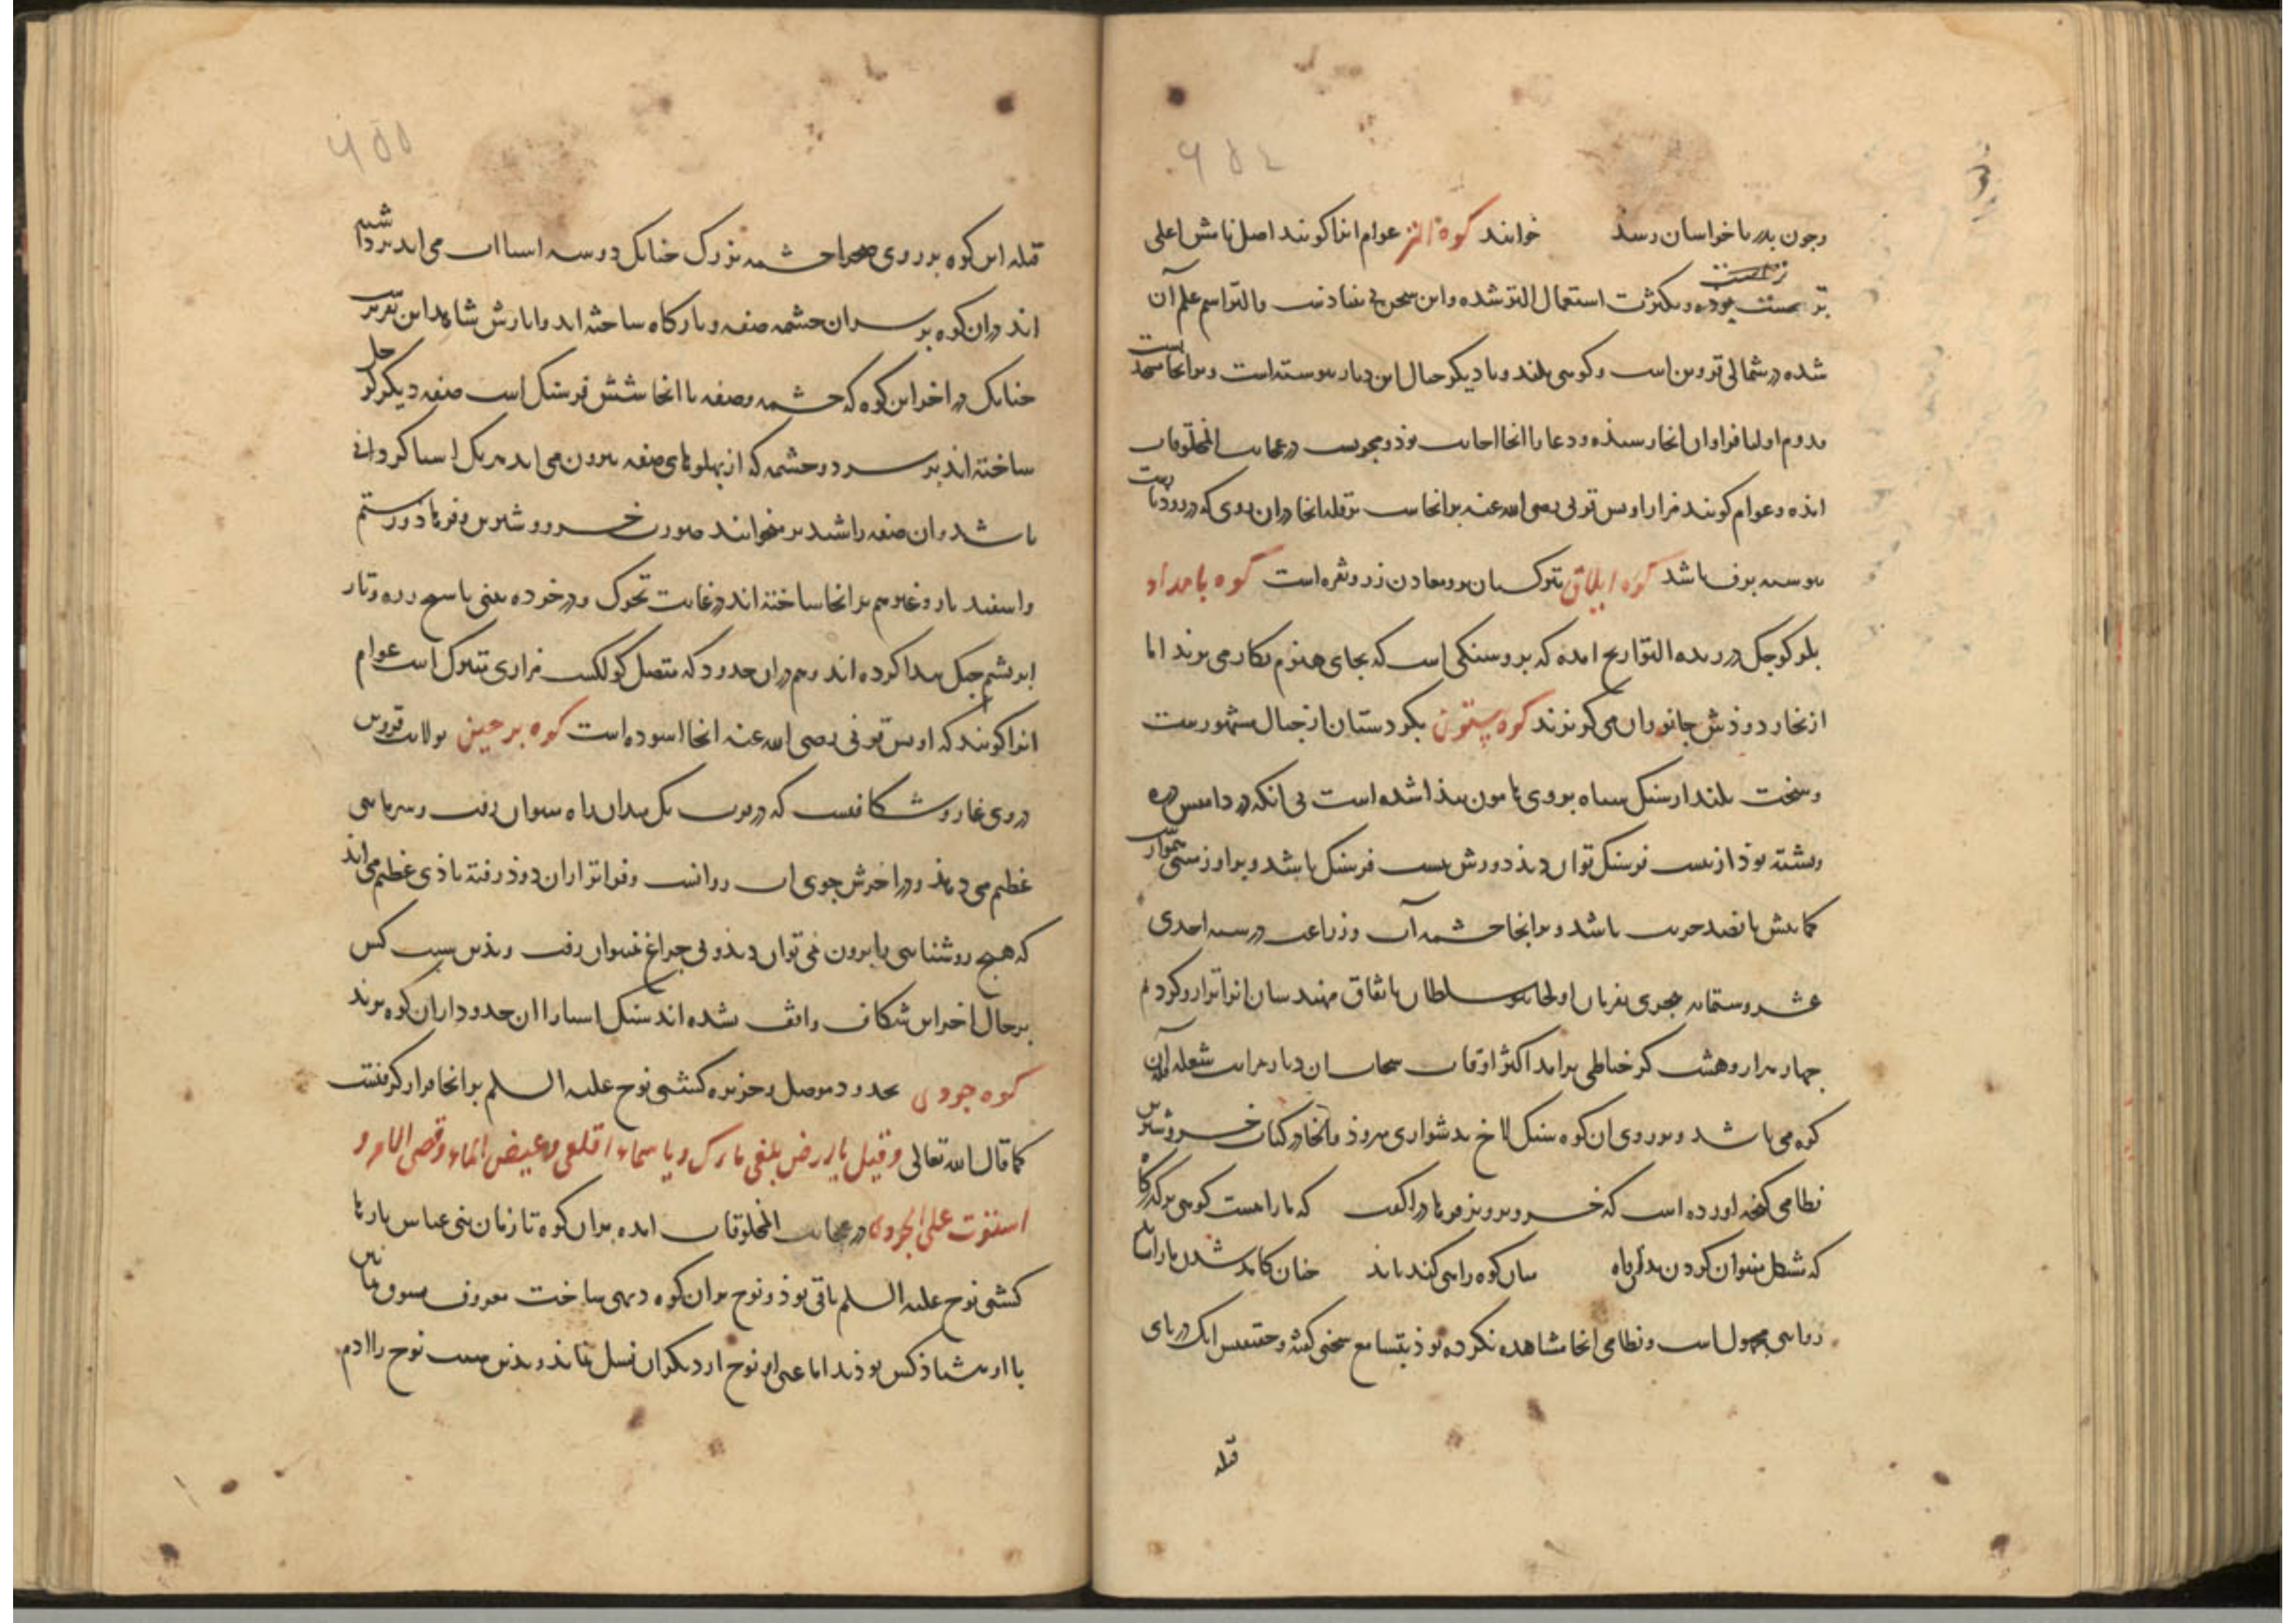 ٩٥٤
وجون بدربا خراسان رسد خوانند کوه التر عوام انرا کویند اصل نامش اعلی
تر است بوده و بکثرت استعمال التر شده و این سخن بی بنیادنیست و التر اسم علم آن
شده در شمالی قزوین است و کوهی بلند و با دیکر جبال این دیار پیوسته است و برانجا مسجدیست
مردم اولیا فراوان انجا رسیده و دعا را انجا اجابت بود و مجربست در عجایب المخلوقات
امده و عوام کویند مزار اویس قرنی رضی الله عنه برانجاست بر قله انجا دران روی که در رودبارست
پیوسته برف باشد کوه ایلاق بترکستان برو معادن زر و نقره است کوه بامداد
کوجک در زبده التواریخ امده که برو سنکی است که بجای هیزم بکار می برند اما
از بخار دودش جانوران می کریزند کوه بیستون بکردستان از جبال مشهورست
و سخت بلند از سنک سیاه بر روی هامون پیدا شده است بی انکه در دامنش دره
و پشته بود از بیست فرسنک توان دید دورش بیست فرسنک باشد و بر او زمینی هموار
کمابیش پانصد جریب باشد و برانجا چشمه آب و زراعت در سنه احدی
عشر و ستمایه هجری بفرمان اولجایتو سلطان باتفاق مهندسان انرا ترازو کردم
جهار هزار و هشت کز خیاطی برامد اکثر اوقات سحاب
کوه می باشد و بر روی ان کوه سنک لاخ بدشواری میرود و انجا در کتاب خسرو شیرین
نظامی کنجه اورده است که خسرو پرویز فرهاد را کفت که ما را هست کوهی بر کذرکاه
که مشکل میتوان کردن بدان راه میان کوه راهی کند باید چنان کامد شدن ما را
روایتی مجهول است و نظامی انجا مشاهده نکرده بود بتسامع سخنی کفته و حقیقتش انک در پای
قله
٩٥٥
قله این کوه بر روی صحرا چشمه بزرک جنانک دو سه اسیا اب می اید برداشته
اند دران کوه بر سر ان چشمه صفه و بارکاه ساخته اند و اثارش شاهد این تقریر
جنانک در اخر این کوه که چشمه و صفه تا انجا شش فرسنک است صفه دیکر
ساخته اند بر سر دو چشمه که از پهلوهای صفه بیرون می اید هر یک اسیا کردانی
باشد و ان صفه را شبدیز میخوانند صورت خسرو و شیرین و فرهاد و رستم
و اسفندیار و غیرهم برانجا ساخته اند در غایت و در خرده بینی تا میخ زره و تار
ابریشم چنک پیدا کرده اند و هم دران حدود که متصل مزاری متبرک است عوام
انرا کویند که اویس قرنی رضی الله عنه انجا اسوده است کوه برجین بولایت قزوین
در وی غار و شکافیست که قریب یک میدان راه میتوان رفت و سرمایی
عظیم می دهد و در اخرش جوی اب روانست و فراتر ازان دود رفته بادی عظیم می اید
که هیچ روشنایی با برون نمی توان دید و بی جراغ نمیتوان رفت و بدین سبب کس
بر حال اخر این شکاف واقف نشده اند سنک اسیا را ان حدود ازان کوه برند
کوه جودی بحدود موصل و جزیره کشتی نوح علیه السلم برانجا قرار کرفتست
کما قال الله تعالی و قیل یا ارض ابلعی ماءک و یا سماء اقلعی و غیض الماء و قضی الامر و
استوت علی الجودی در عجایب المخلوقات امده بران کوه تا زمان بنی عباس بارها
کشتی نوح علیه السلم باقی بود و نوح بران کوه دیهی ساخت معروف بسوق ثمانین
با او هشتاد کس بودند اما غیر از نوح از دیکران نسل نماند و بدین سبب نوح را ادم